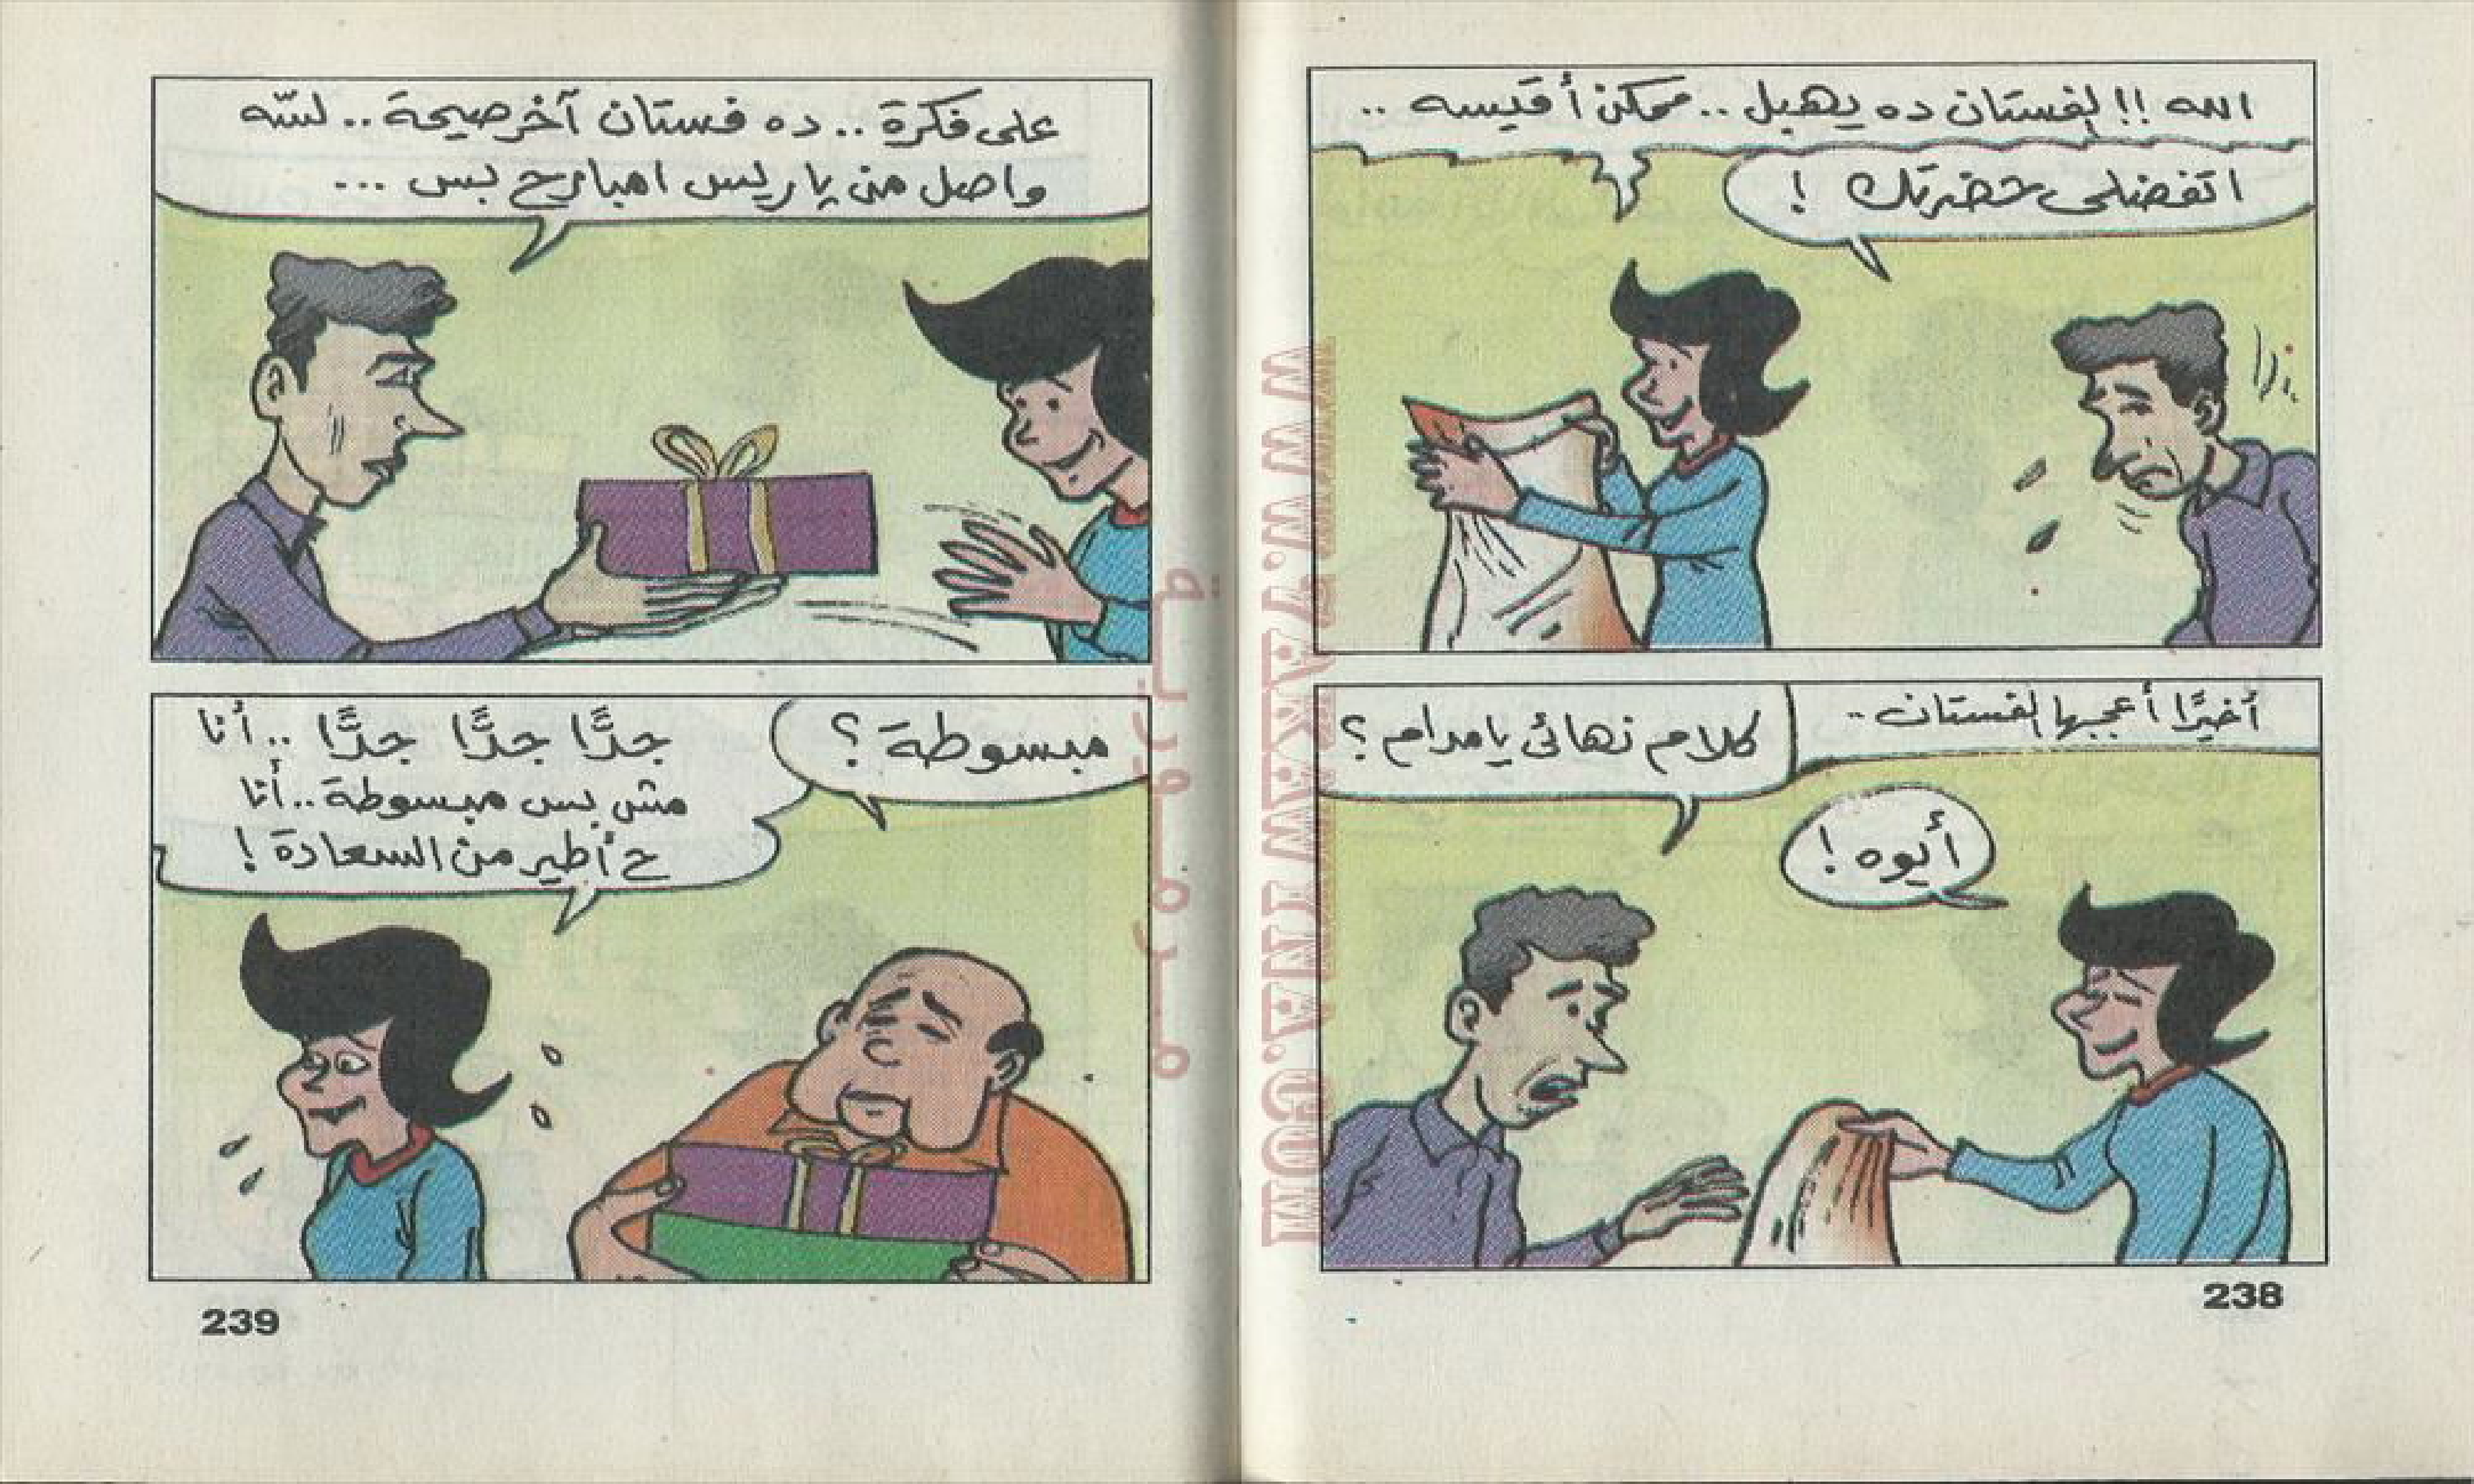 الله !! الفستان ده يهبل .. ممكن أقيسه ..
اتفضلى حضرتك !
أخيرًا أعجبها الفستان ..
كلام نهائى يا مدام ؟
أيوه !
238
على فكرة .. ده فستان آخر صيحة .. لسّه
واصل من باريس امبارح بس ...
مبسوطة ؟
جدًّا جدًّا جدًّا .. أنا
مش بس مبسوطة .. أنا
ح أطير من السعادة !
239